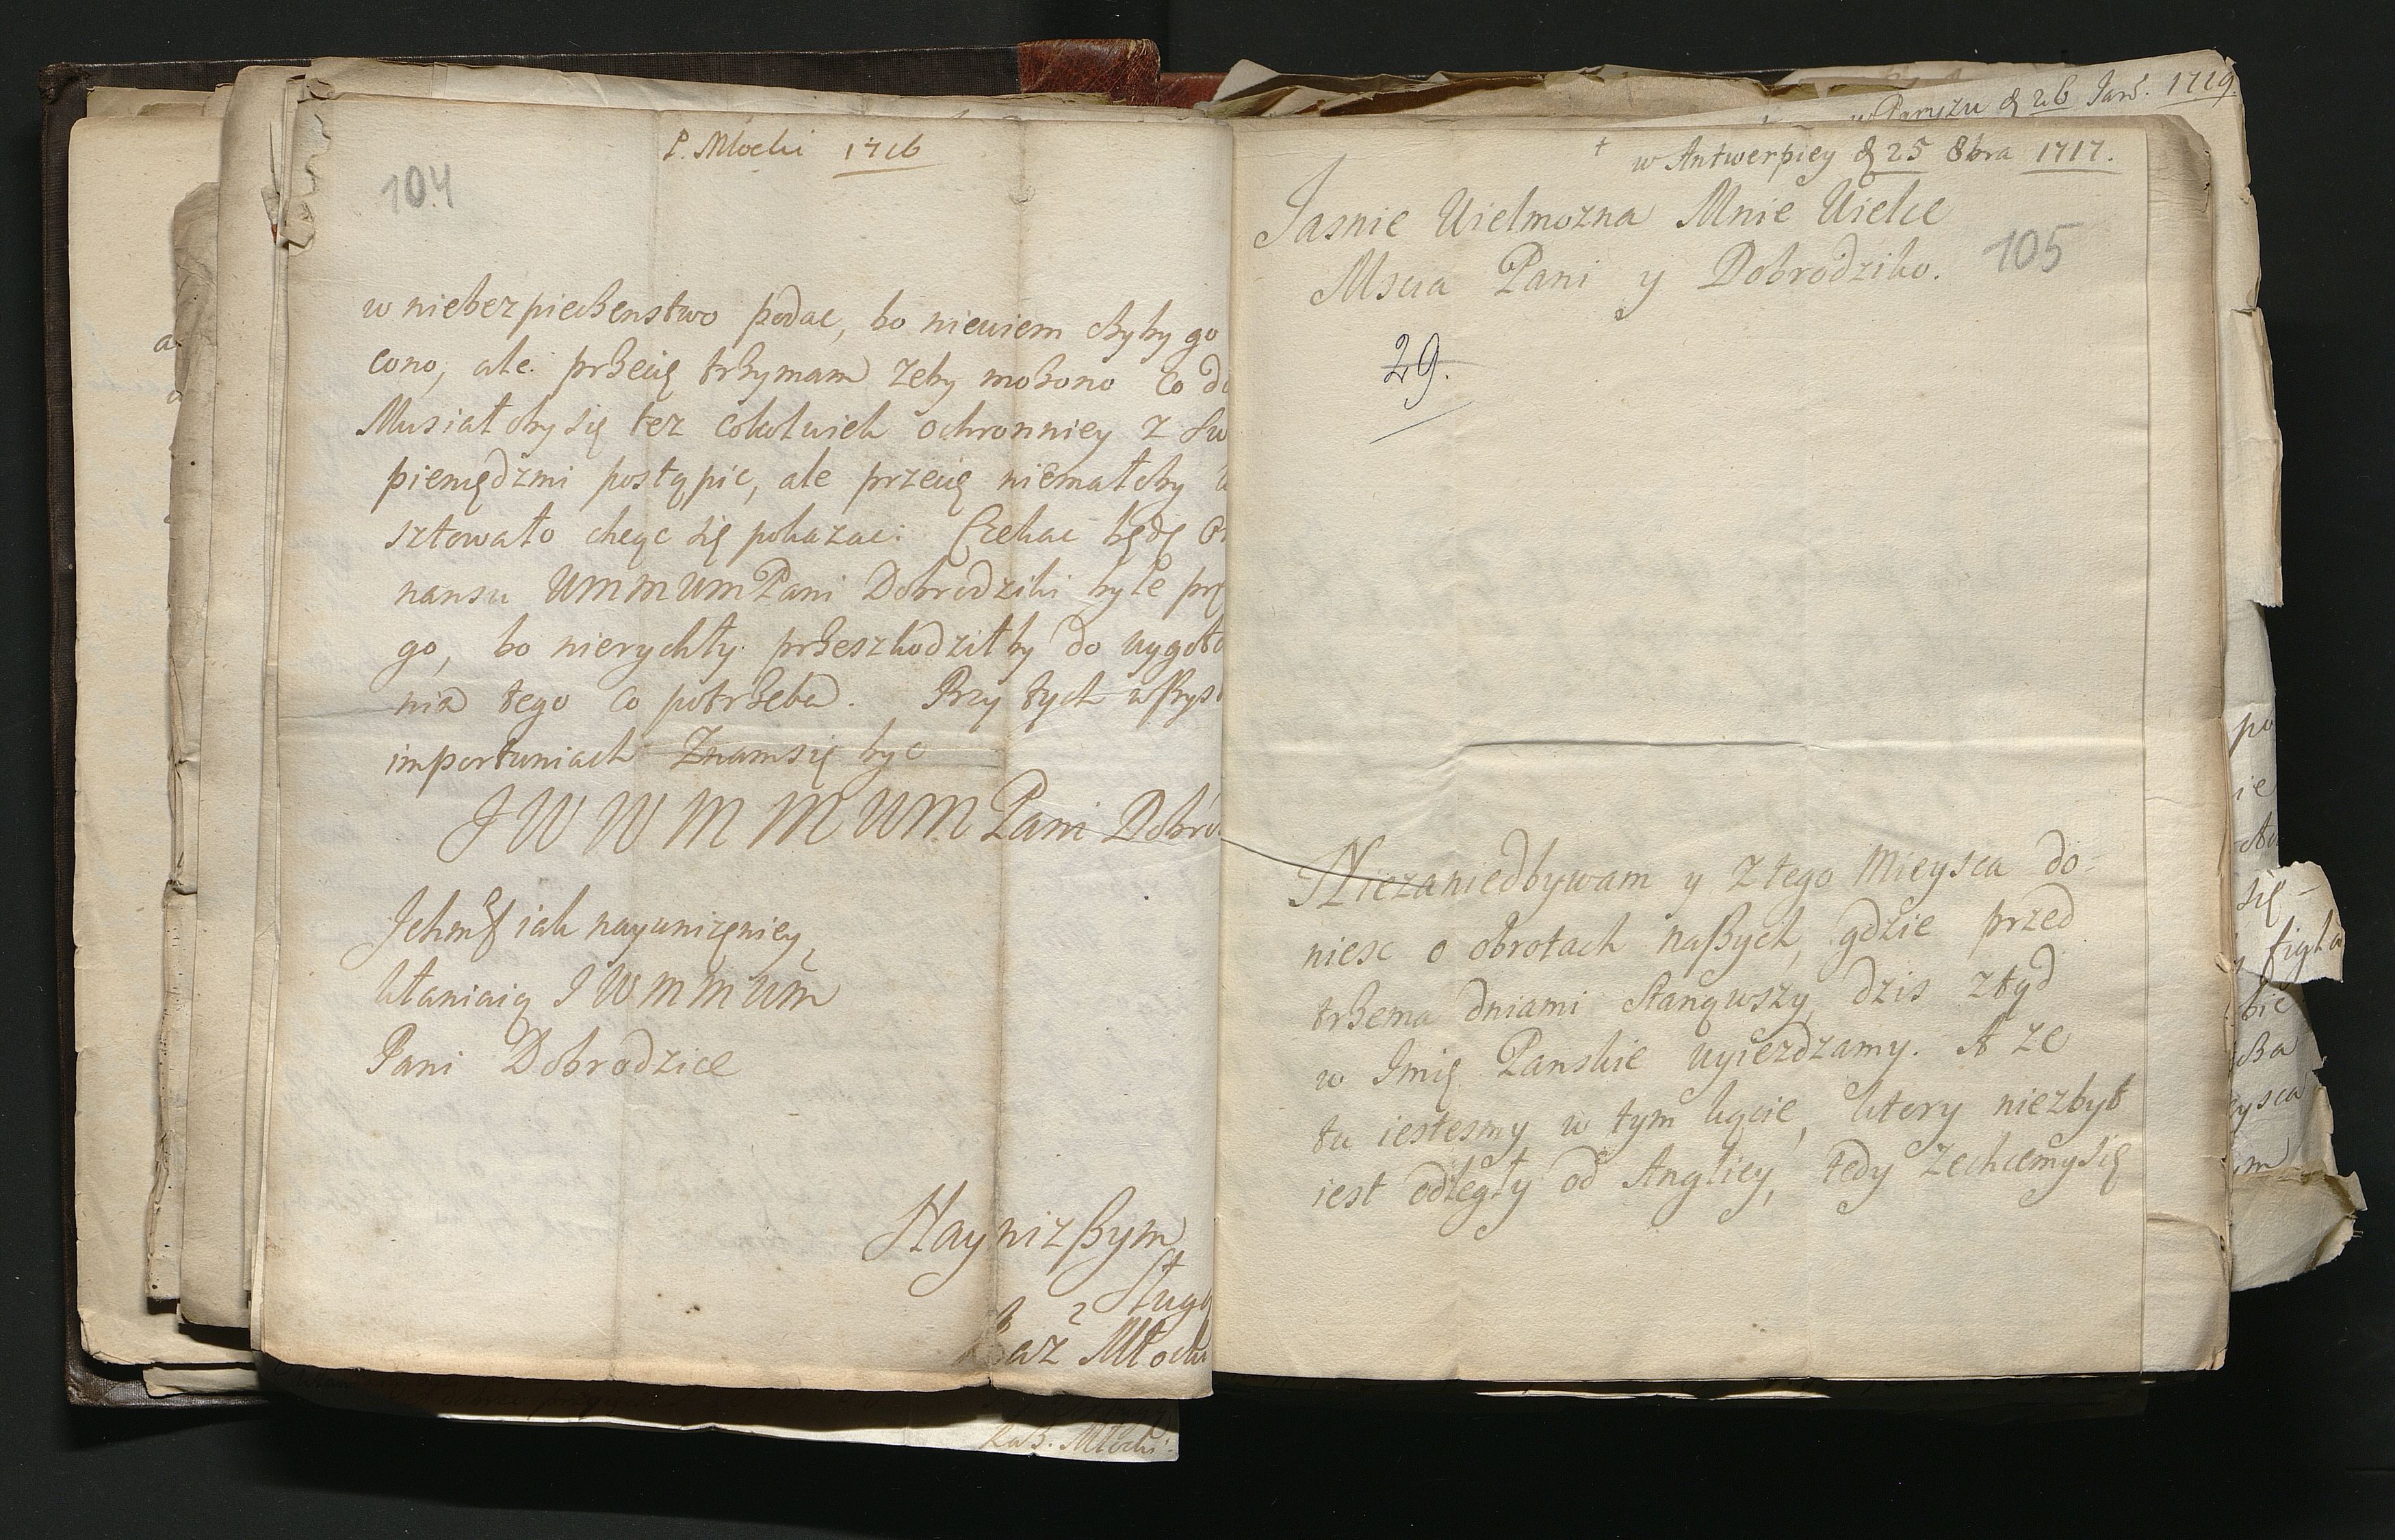 P. Mlocki 1716
104
w niebezpieczenstwo podac, bo niewiem czyby go
cono, ale przecię trzymam zeby mozono co
Musiałoby się tez cokolwiek ochronniey z
pieniędzmi postąpic, ale przecię niemałoby
sztowało chcąc się pokazac: Czekac będę
nansu UMMUMPani Dobrodziki byle
go, bo nierychły przeszkodziłby do
nia tego co potrzeba. Przy tych
importuniach Znamsię byc
J W W M M UM Pani
Jehmć iak nayunizęniey
kłaniaią J W M M UM
Pani Dobrodzice
Nayniższym
Sługą
Kaz Młocki
Kaz. Młocki
w Paryzu d 26 Jan. 1719.
+ w Antwerpiey d 25 8bra 1717.
Jasnie Wielmozna Mnie Wielce
Mscia Pani y Dobrodziko.
105
29.
Niezaniedbywam y z tego Mieysca do=
niesc o obrotach naszych, gdzie przed
trzema dniami stanąwszy, dzis ztąd
w Imię Panskie wyiezdzamy. A ze
tu iestesmy w tym kącie, ktory niezbyt
iest odległy od Angliey, tedy zechcemysię